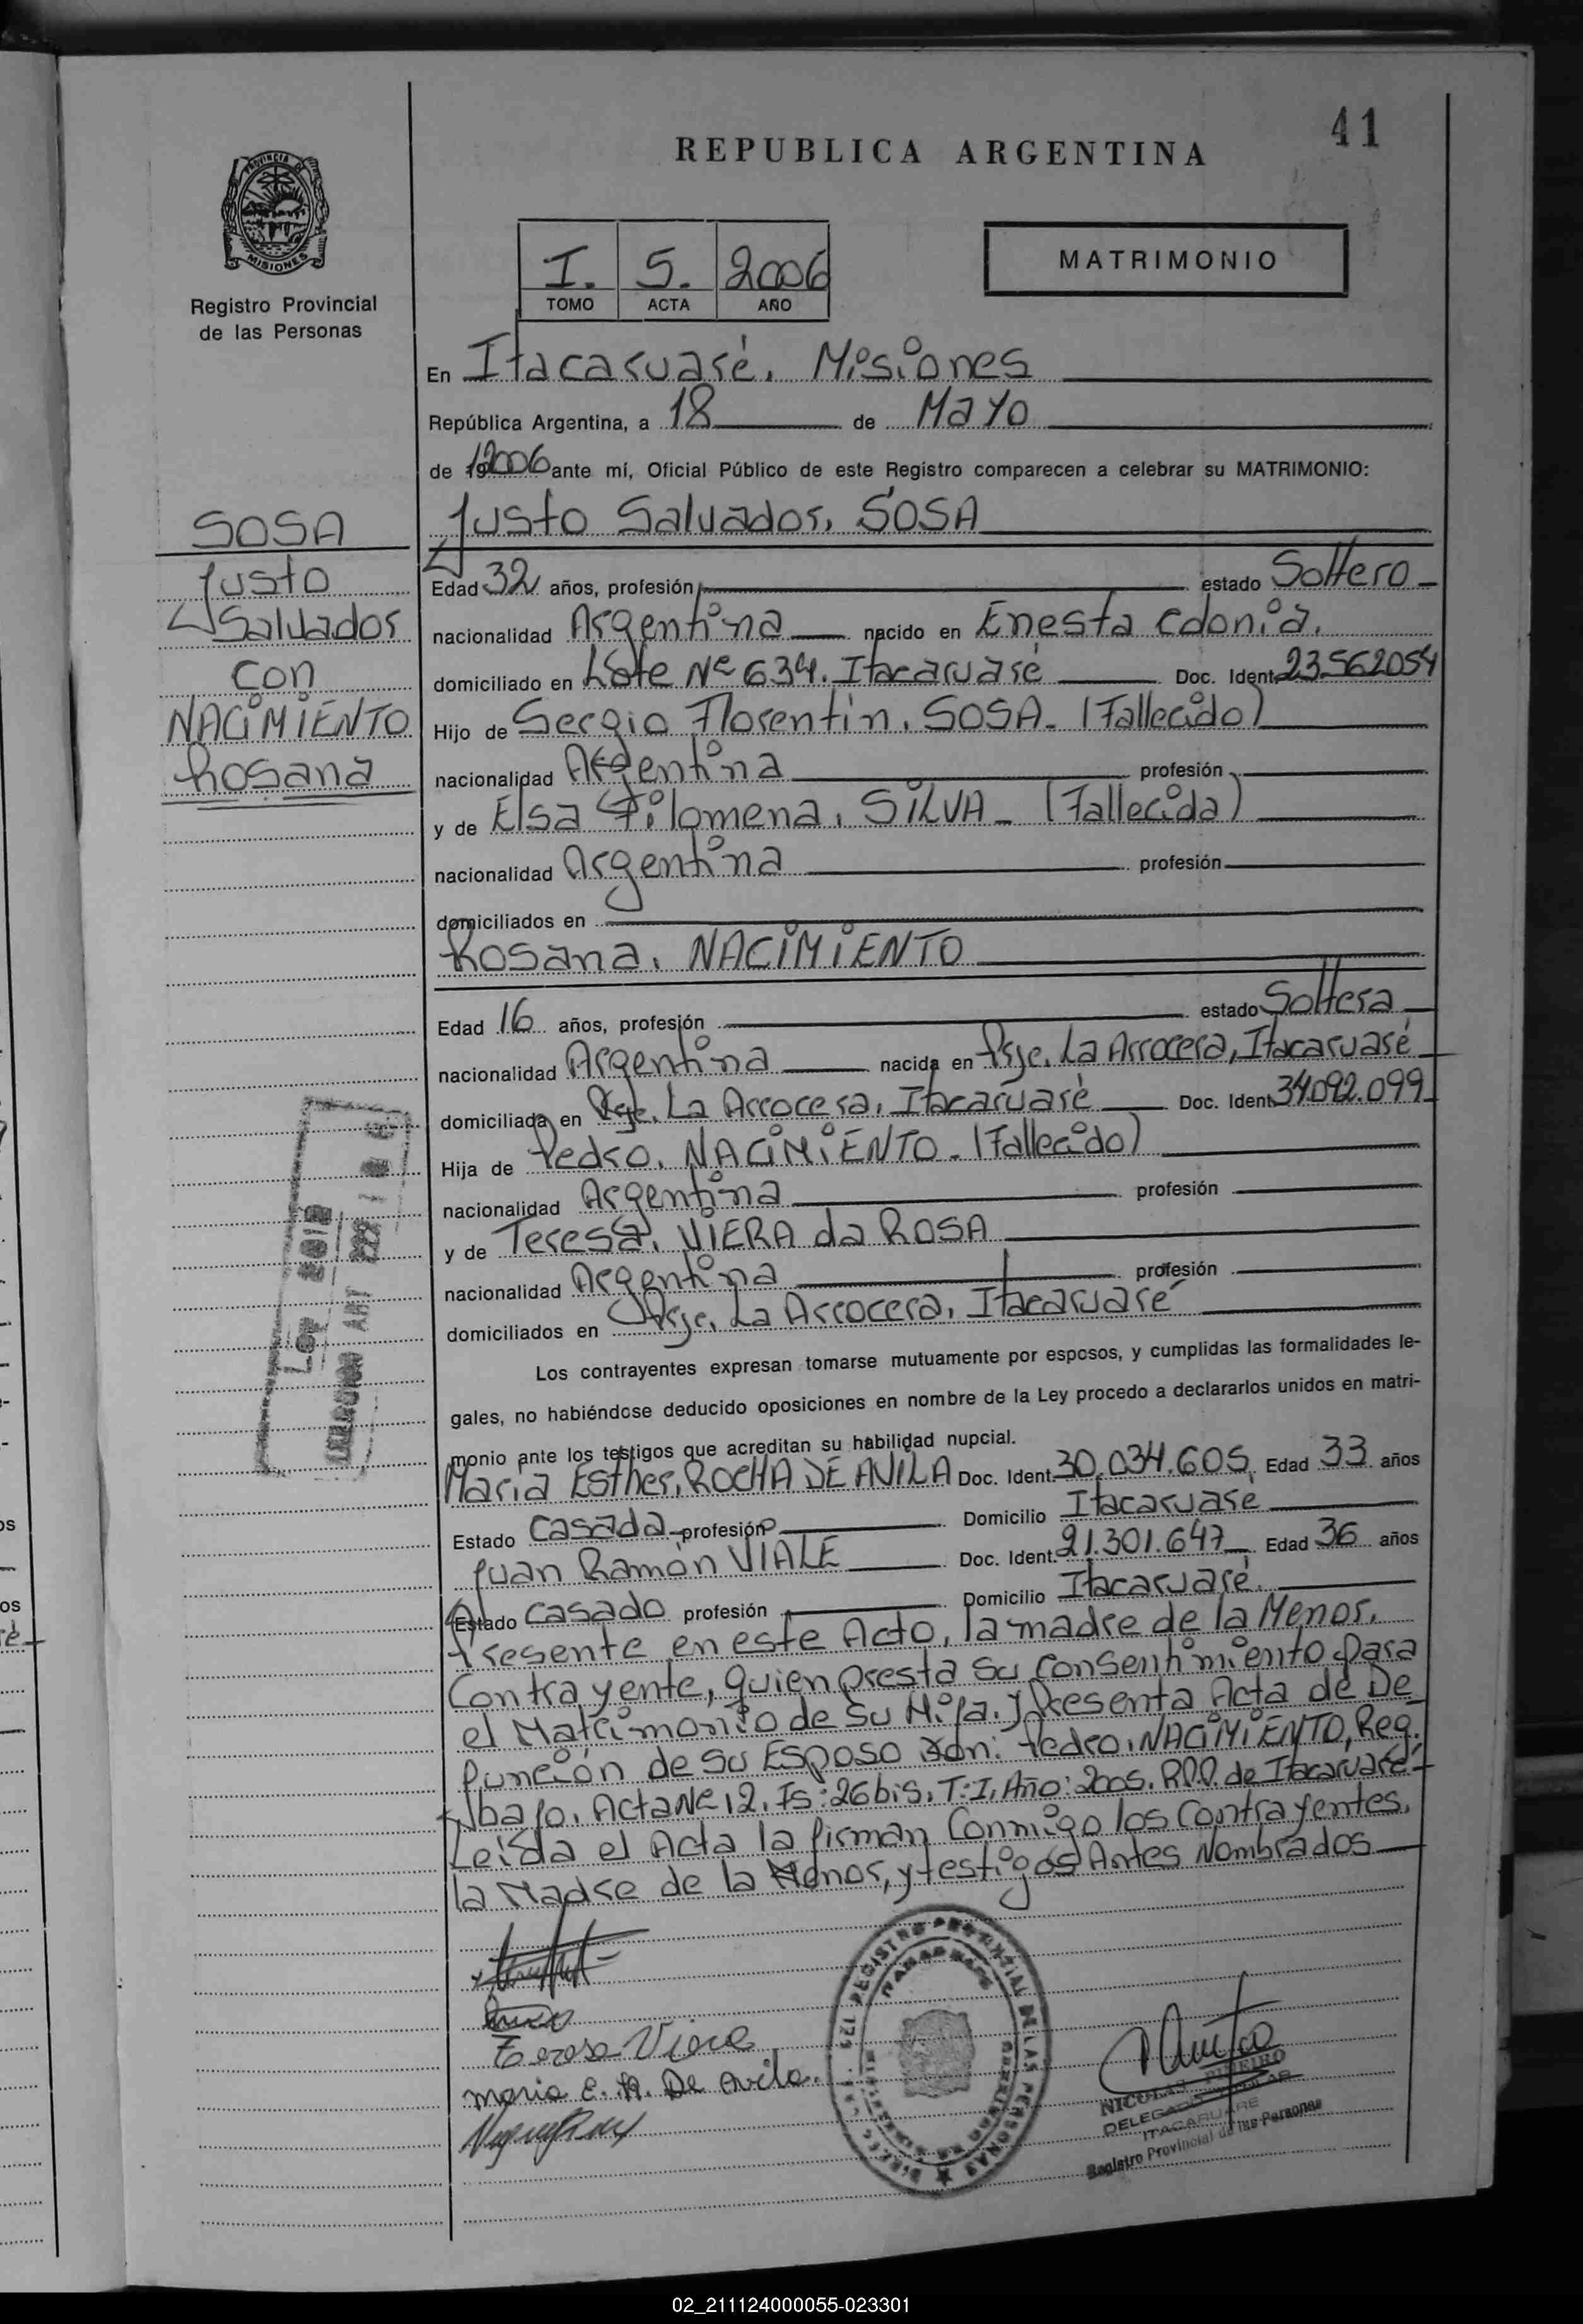 41
REPUBLICA ARGENTINA
PROVINCIA DE
MISIONES
Registro Provincial
de las Personas
I. 5. 2006
TOMO ACTA AÑO
MATRIMONIO
En Itacaruaré. Misiones
República Argentina, a 18 de Mayo
de 2006 ante mí, Oficial Público de este Registro comparecen a celebrar su MATRIMONIO:
SOSA
Justo
Salvador
con
NACIMIENTO
Rosana
Justo Salvador, SOSA
Edad 32 años, profesión estado Soltero
nacionalidad Argentina nacido en Enesta Colonia.
domiciliado en Lote Nº 634. Itacaruaré Doc. Ident. 23.562054
Hijo de Sergio Florentin, SOSA - (Fallecido)
nacionalidad Argentina profesión
y de Elsa Filomena, SILVA - (Fallecida)
nacionalidad Argentina profesión
domiciliados en
Rosana, NACIMIENTO
Edad 16 años, profesión estado Soltera
nacionalidad Argentina nacida en Pje. La Arrocera, Itacaruaré
domiciliada en Pje. La Arrocera, Itacaruaré Doc. Ident. 34.092.099
Hija de Pedro, NACIMIENTO - (Fallecido)
nacionalidad Argentina profesión
y de Teresa, VIERA da ROSA
nacionalidad Argentina profesión
domiciliados en Pje. La Arrocera, Itacaruaré
Los contrayentes expresan tomarse mutuamente por esposos, y cumplidas las formalidades le-
gales, no habiéndose deducido oposiciones en nombre de la Ley procedo a declararlos unidos en matri-
monio ante los testigos que acreditan su habilidad nupcial.
Maria Esther, ROCHA DE AVILA Doc. Ident. 30.034.605 Edad 33 años
Estado Casada profesión Domicilio Itacaruare
Juan Ramón VIALE Doc. Ident. 21.301.647 Edad 36 años
Estado Casado profesión Domicilio Itacaruaré.
Presente en este Acto, la madre de la Menor.
Contrayente, quien presta su consentimiento para
el Matrimonio de su Hija. y Presenta Acta de De
función de su Esposo Don: Pedro, NACIMIENTO, Reg.
abajo, Acta Nº 12, Fs: 26 bis, T: I, Año: 2005. R.P.P. de Itacaruaré
Leída el Acta la firman Conmigo los Contrayentes,
la Madre de la Menor, y testigos Antes Nombrados
Teresa Viera
maria E. R. De avila.
REGISTRO PROVINCIAL DE LAS PERSONAS
NICOLAS PIÑEIRO
DELEGADO TITULAR
ITACARUARE
Registro Provincial de las Personas
02_211124000055-023301